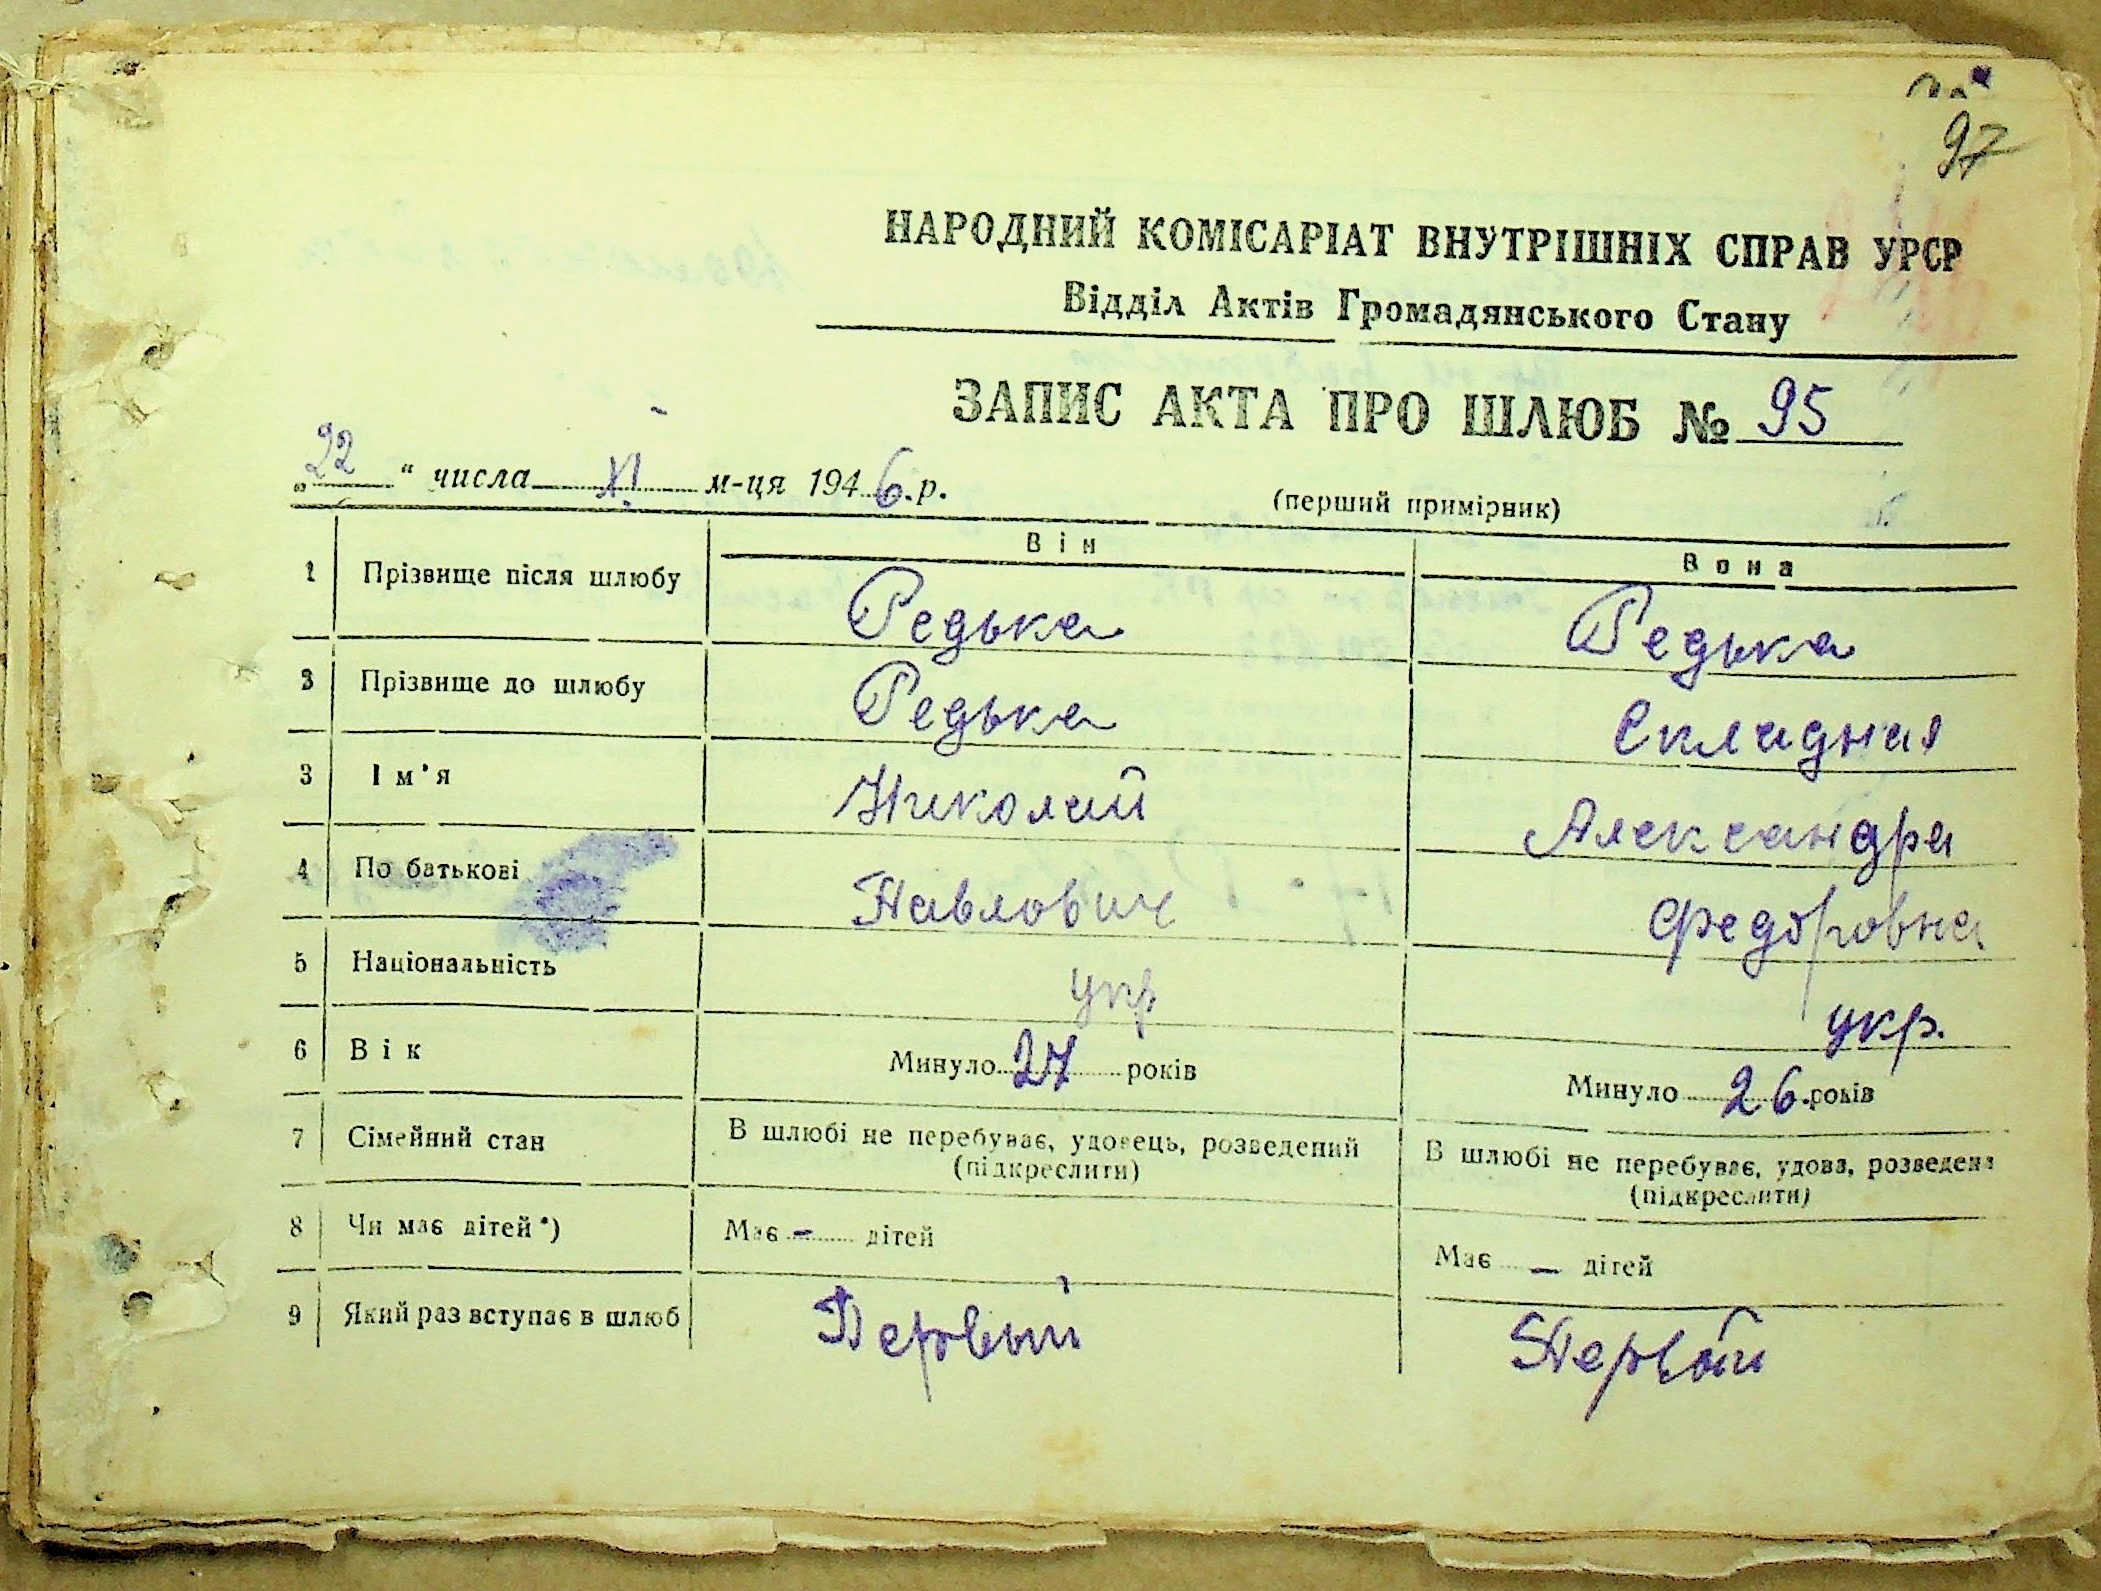 97
НАРОДНИЙ КОМІСАРІАТ ВНУТРІШНІХ СПРАВ УРСР
Відділ Актів Громадянського Стану
ЗАПИС АКТА ПРО ШЛЮБ № 95
„22" числа XI м-ця 1946.р.
(перший примірник)
Він Вона
1 Прізвище після шлюбу Редька Редька
2 Прізвище до шлюбу Редька Складная
3 Ім'я Николай Александра
4 По батькові Павлович Федоровна
5 Національність укр укр.
6 Вік Минуло 27 років Минуло 26 років
7 Сімейний стан В шлюбі не перебуває, удовець, розведений (підкреслити) В шлюбі не перебуває, удова, розведена (підкреслити)
8 Чи має дітей*) Має – дітей Має – дітей
9 Який раз вступає в шлюб Первый Первый